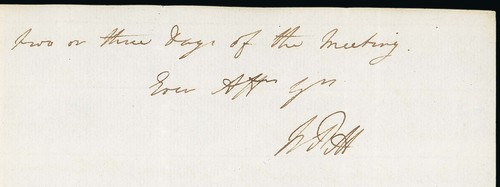 two or three Days of the Meeting.
Ever Affly Yrs
W Pitt